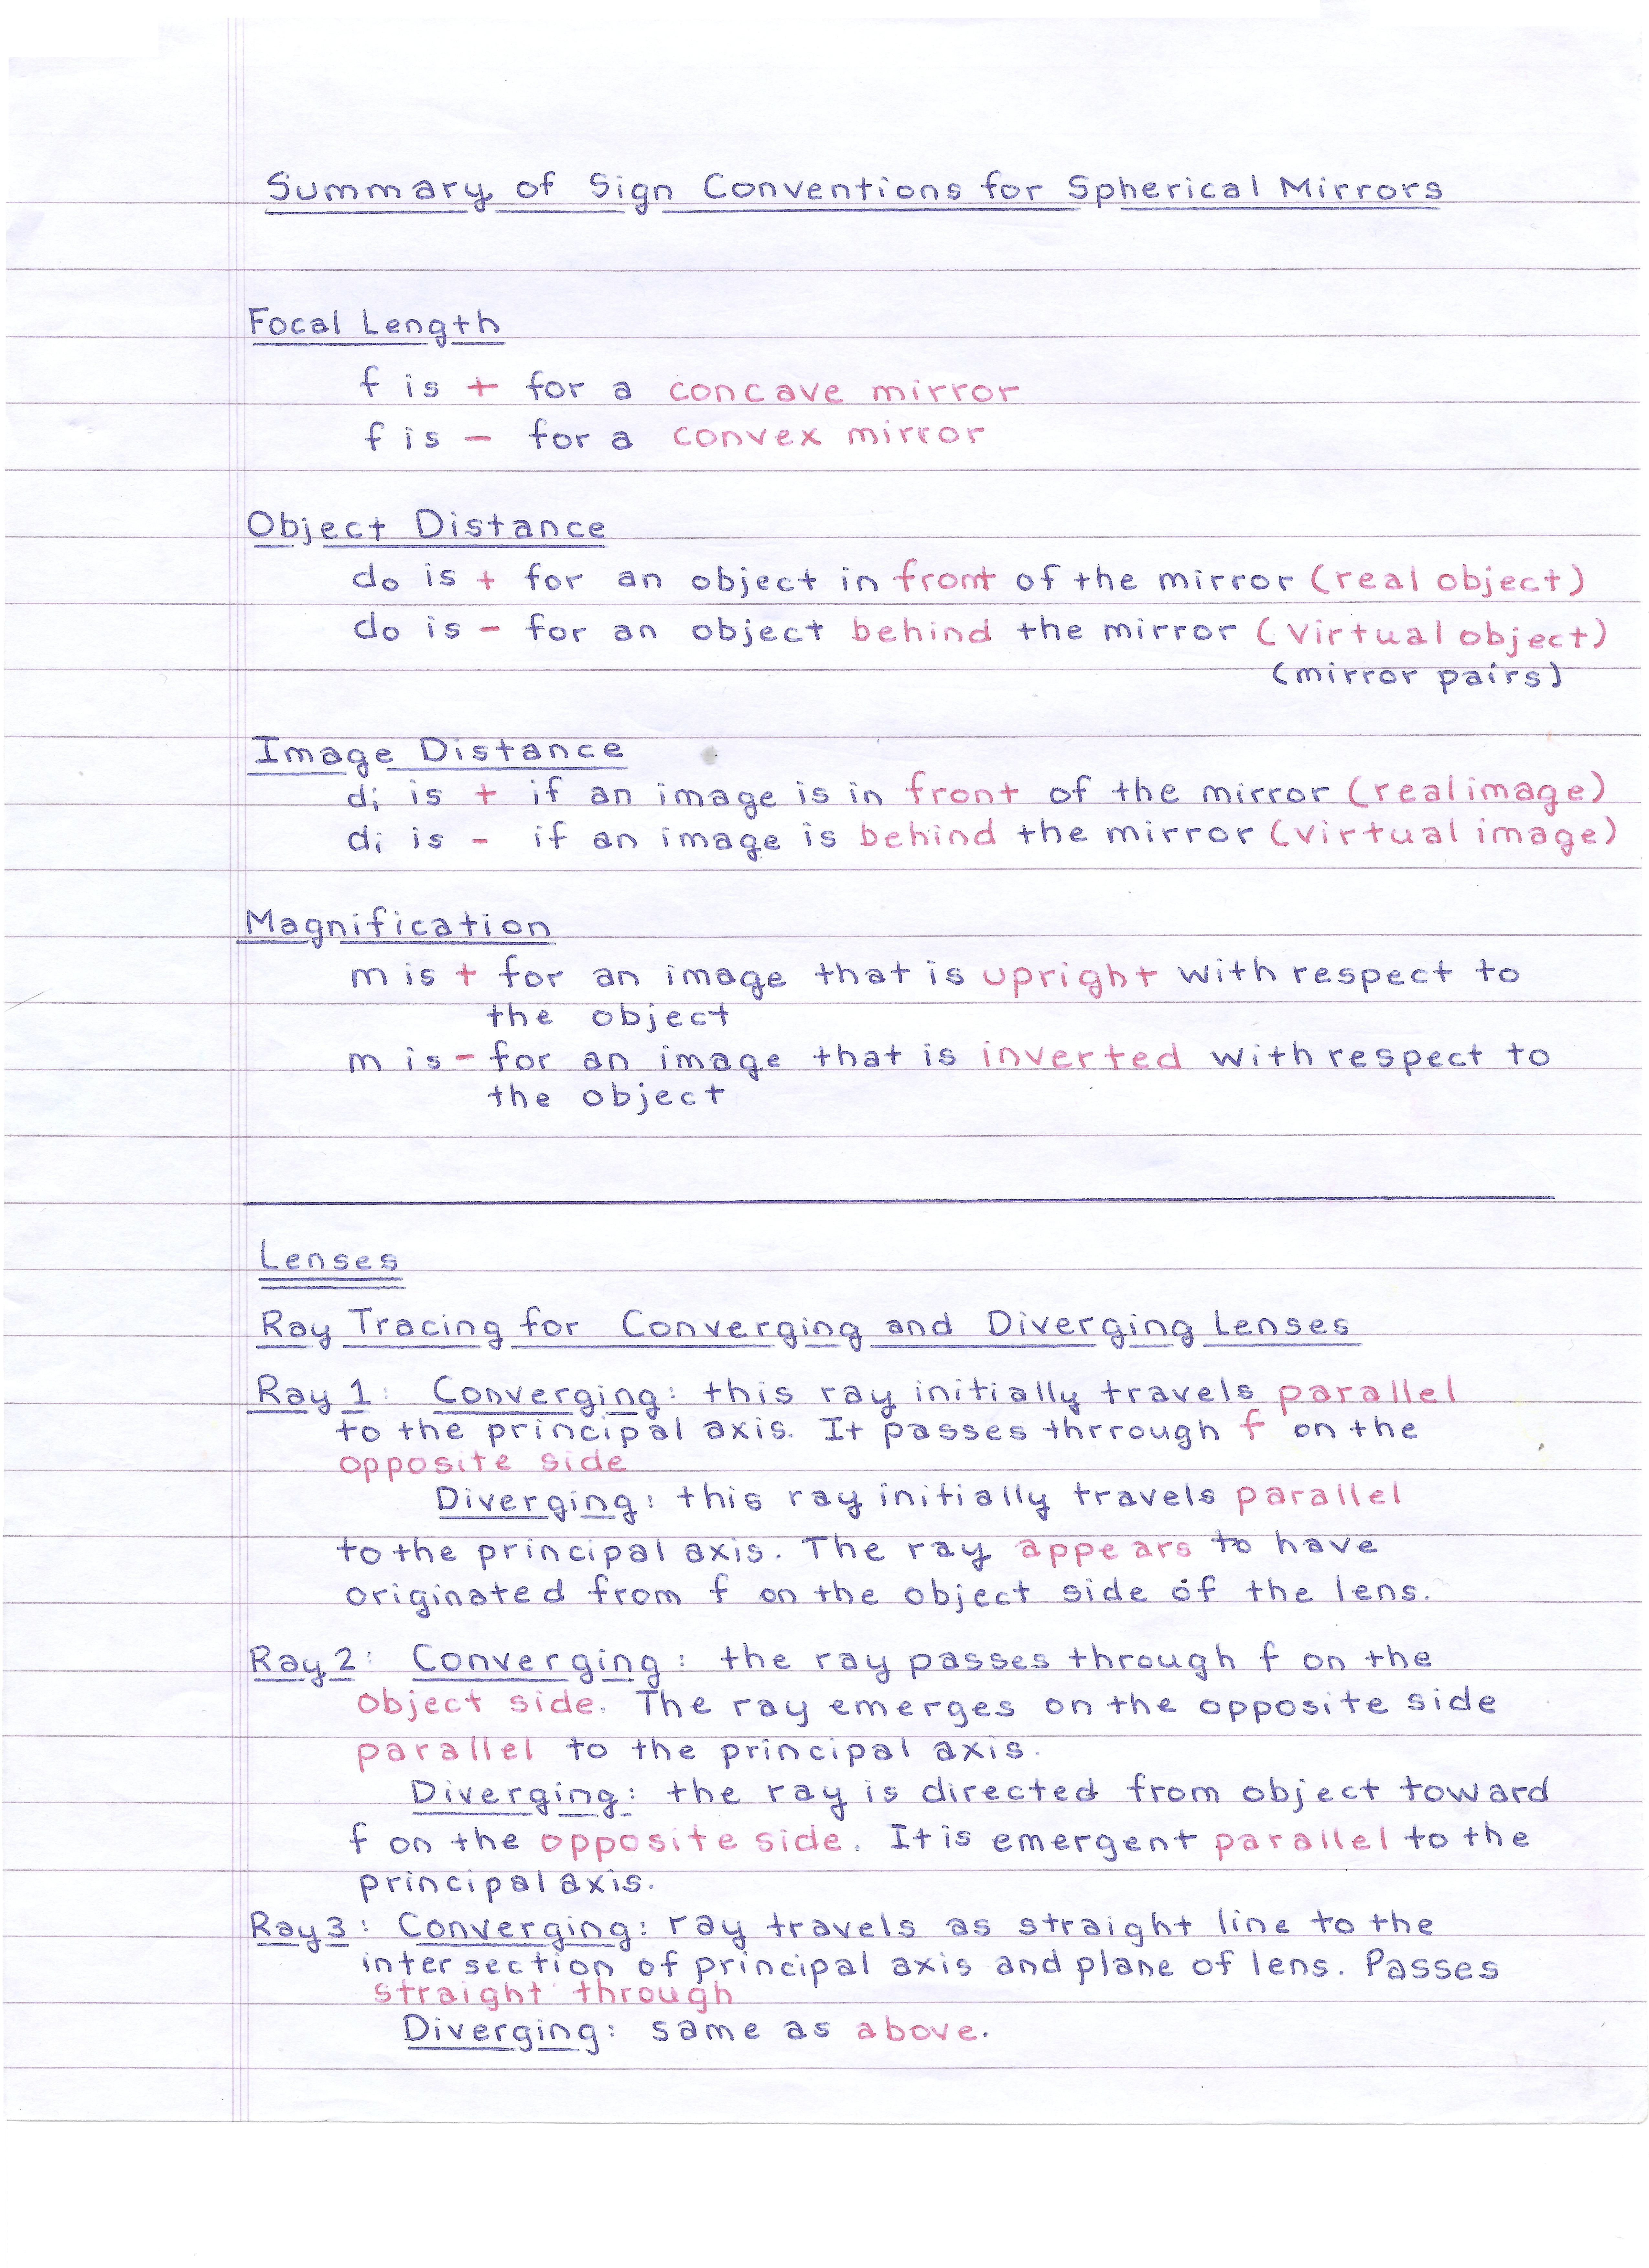 Summary of Sign Conventions for Spherical Mirrors
Focal Length
f is + for a concave mirror
f is - for a convex mirror
Object Distance
do is + for an object in front of the mirror (real object)
do is - for an object behind the mirror (virtual object)
(mirror pairs)
Image Distance
di is + if an image is in front of the mirror (real image)
di is - if an image is behind the mirror (virtual image)
Magnification
m is + for an image that is upright with respect to
the object
m is - for an image that is inverted with respect to
the object
Lenses
Ray Tracing for Converging and Diverging Lenses
Ray 1: Converging: this ray initially travels parallel
to the principal axis. It passes thrrough f on the
opposite side
Diverging: this ray initially travels parallel
to the principal axis. The ray appears to have
originated from f on the object side of the lens.
Ray 2: Converging: the ray passes through f on the
object side. The ray emerges on the opposite side
parallel to the principal axis.
Diverging: the ray is directed from object toward
f on the opposite side. It is emergent parallel to the
principal axis.
Ray 3: Converging: ray travels as straight line to the
intersection of principal axis and plane of lens. Passes
straight through
Diverging: same as above.